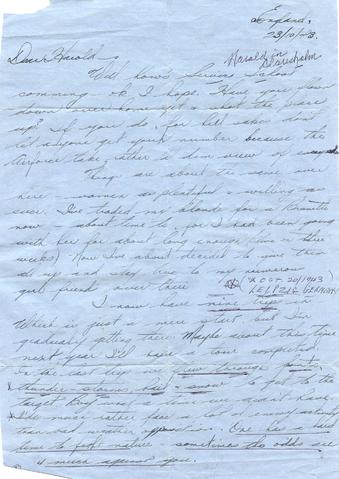 England,
23/10/43.
Dear Harold,
Harald in
Well how's Service School
comming. ok I hope. Have you flown
down over home yet
up? If you do, for hell sakes don't
let anyone get your number because the
Airforce take rather a dim view of
Things are about the same over
here - women as plentiful & willing as
ever. I've traded my blonde for a Brunette
now - about time to, for I had been going
with her for about long enough (two or three
weeks) Now I've about decided to give them
all up and stay true to my numerous
girl friend over there
OCT. 20/1943
LEIPZIG GERMANY
I now have nine trips in
Which is just a mere start, but I'm
gradually getting there. Maybe about this time
next year I'll have a tour completed.
In the last trip we flew through fronts,
thunder-storms, hail & snow to get to the
target
I'd much rather face a lot of enemy activity
than bad weather opposition. One has a hard
time to fight nature - sometimes the odds are
& much against you.